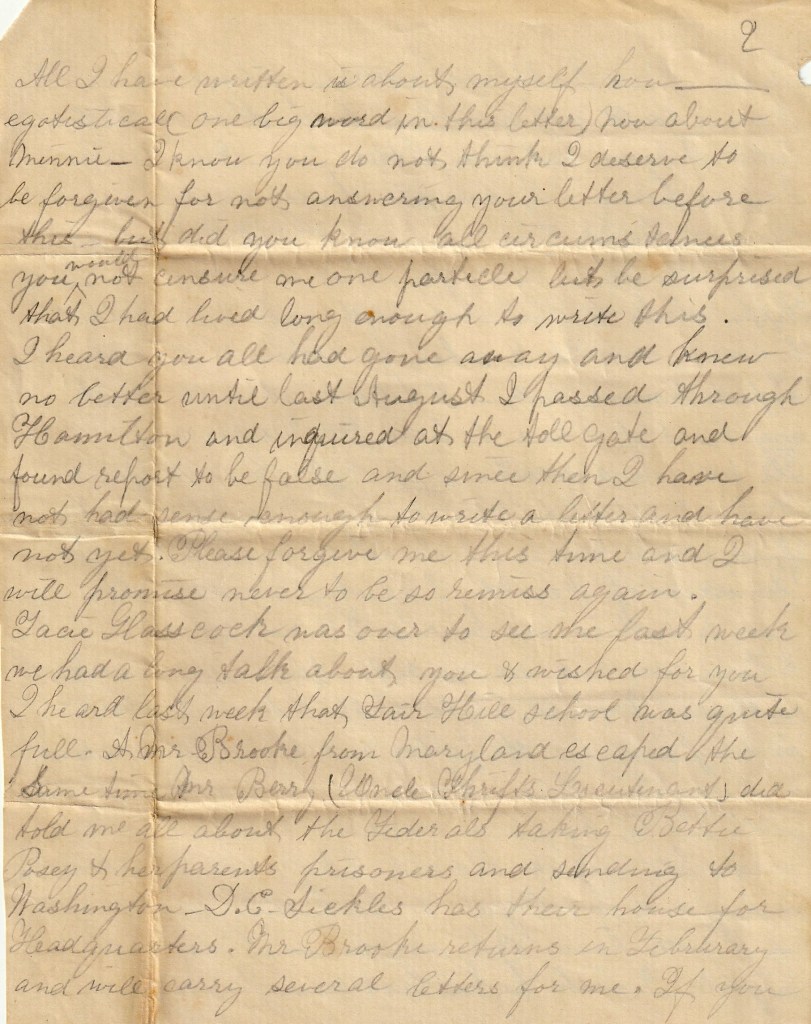 2
All I have written is about myself how ——
egotistical (one big word in this letter) now about
Minnie — I know you do not think I deserve to
be forgiven for not answering your letter before
this — but did you know all circumstances
you would not censure me one particle but be surprised
that I had lived long enough to write this.
I heard you all had gone away and knew
no better until last August I passed through
Hamilton and inquired at the toll gate and
found report to be false and since then I have
not had sense enough to write a letter and have
not yet. Please forgive me this time and I
will promise never to be so remiss again.
Tacie Glasscock was over to see me last week
we had a long talk about you & wished for you
I heard last week that Fair Hill school was quite
full. A Mr Brooke from Maryland escaped the
same time Mr Berry (Uncle Thrift's Lieutenant) did
told me all about the Federals taking Bettie
Posey & her parents prisoners and sending to
Washington — D.C. Sickles has their house for
Headquarters. Mr Brooke returns in Februrary
and will carry several letters for me. If you